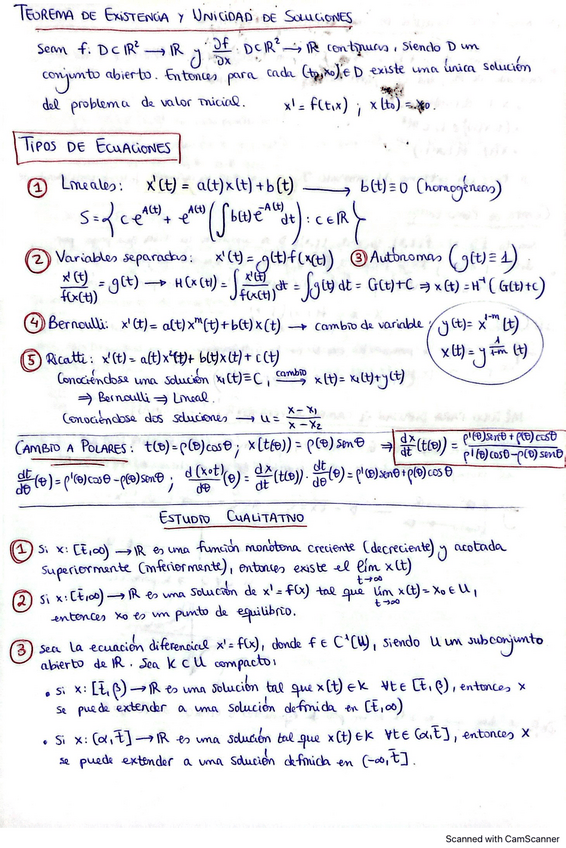 TEOREMA DE EXISTENCIA Y UNICIDAD DE SOLUCIONES
Sean f: D⊂ℝ² → ℝ y ∂f/∂x: D⊂ℝ² → ℝ continuas, siendo D un
conjunto abierto. Entonces para cada (t₀,x₀)∈D existe una única solución
del problema de valor inicial. x' = f(t,x) ; x(t₀) = x₀.
TIPOS DE ECUACIONES
① Lineales: x'(t) = a(t)x(t)+b(t) → b(t)≡0 (homogéneas)
S = { c e^{A(t)} + e^{A(t)} (∫ b(t) e^{-A(t)} dt) : c∈ℝ }
② Variables separadas: x'(t) = g(t)f(x(t)) ③ Autónomas (g(t)≡1)
x'(t)/f(x(t)) = g(t) → H(x(t)) = ∫ x'(t)/f(x(t)) dt = ∫g(t) dt = G(t)+C ⇒ x(t) = H⁻¹(G(t)+c)
④ Bernoulli: x'(t) = a(t)x^m(t)+b(t)x(t) → cambio de variable: y(t) = x^{1-m}(t)
x(t) = y^{1/(1-m)}(t)
⑤ Ricatti: x'(t) = a(t)x²(t)+b(t)x(t)+c(t)
Conociéndose una solución x₁(t)≡C, cambio → x(t) = x₁(t)+y(t)
⇒ Bernoulli → Lineal.
Conociéndose dos soluciones → u = (x-x₁)/(x-x₂)
CAMBIO A POLARES: t(θ) = ρ(θ)cosθ ; x(t(θ)) = ρ(θ)senθ ⇒ dx/dt (t(θ)) = (ρ'(θ)senθ+ρ(θ)cosθ)/(ρ'(θ)cosθ-ρ(θ)senθ)
dt/dθ (θ) = ρ'(θ)cosθ-ρ(θ)senθ ; d(x∘t)/dθ (θ) = dx/dt (t(θ)) · dt/dθ (θ) = ρ'(θ)senθ+ρ(θ)cosθ
ESTUDIO CUALITATIVO
① Si x: [t̄,∞) → ℝ es una función monótona creciente (decreciente) y acotada
superiormente (inferiormente), entonces existe el lím_{t→∞} x(t)
② Si x: [t̄,∞) → ℝ es una solución de x' = f(x) tal que lím_{t→∞} x(t) = x₀∈U,
entonces x₀ es un punto de equilibrio.
③ Sea la ecuación diferencial x' = f(x), donde f∈C¹(U), siendo U un subconjunto
abierto de ℝ. Sea K⊂U compacto:
• Si x: [t̄,β) → ℝ es una solución tal que x(t)∈K ∀t∈[t̄,β), entonces x
se puede extender a una solución definida en [t̄,∞)
• Si x: (α,t̄] → ℝ es una solución tal que x(t)∈K ∀t∈(α,t̄], entonces x
se puede extender a una solución definida en (-∞,t̄].
Scanned with CamScanner